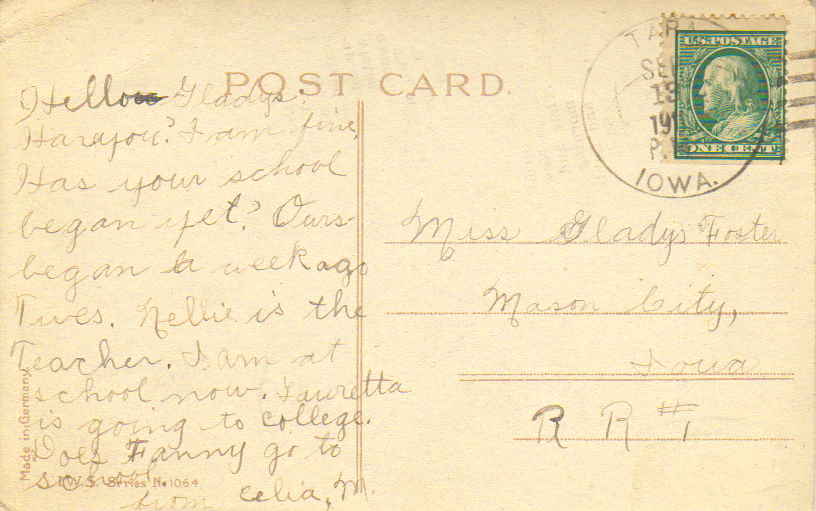 POST CARD.
TARA
SEP
19
P.M
IOWA.
U.S. POSTAGE
ONE CENT
Hello Gladys.
Harayou? I am fine,
Has your school
began yet? Ours
began a week ago
Tues. Nellie is the
Teacher. I am at
school now. Lauretta
is going to college.
Does Fanny go to
school
from Celia, M.
Miss Gladys Foster
Mason City,
Iowa
R R #1
Made in Germany
I.W.S. Series No 1064